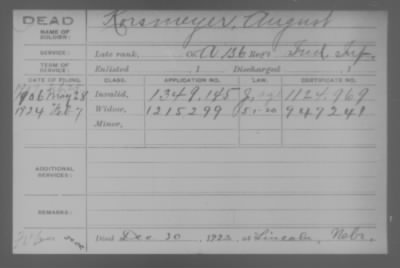 DEAD
NAME OF SOLDIER:
Korsmeyer, August
SERVICE:
Late rank, Co. A 136 Reg't Ind. Inf.
TERM OF SERVICE:
Enlisted , 1 Discharged , 1
DATE OF FILING. CLASS. APPLICATION NO. LAW. CERTIFICATE NO.
1906 May 28 Invalid, 1349,145 1124,969
1924 Feb 7 Widow, 1215299 947241
Minor,
ADDITIONAL SERVICES:
REMARKS:
Died Dec 30, 1923, at Lincoln, Nebr.